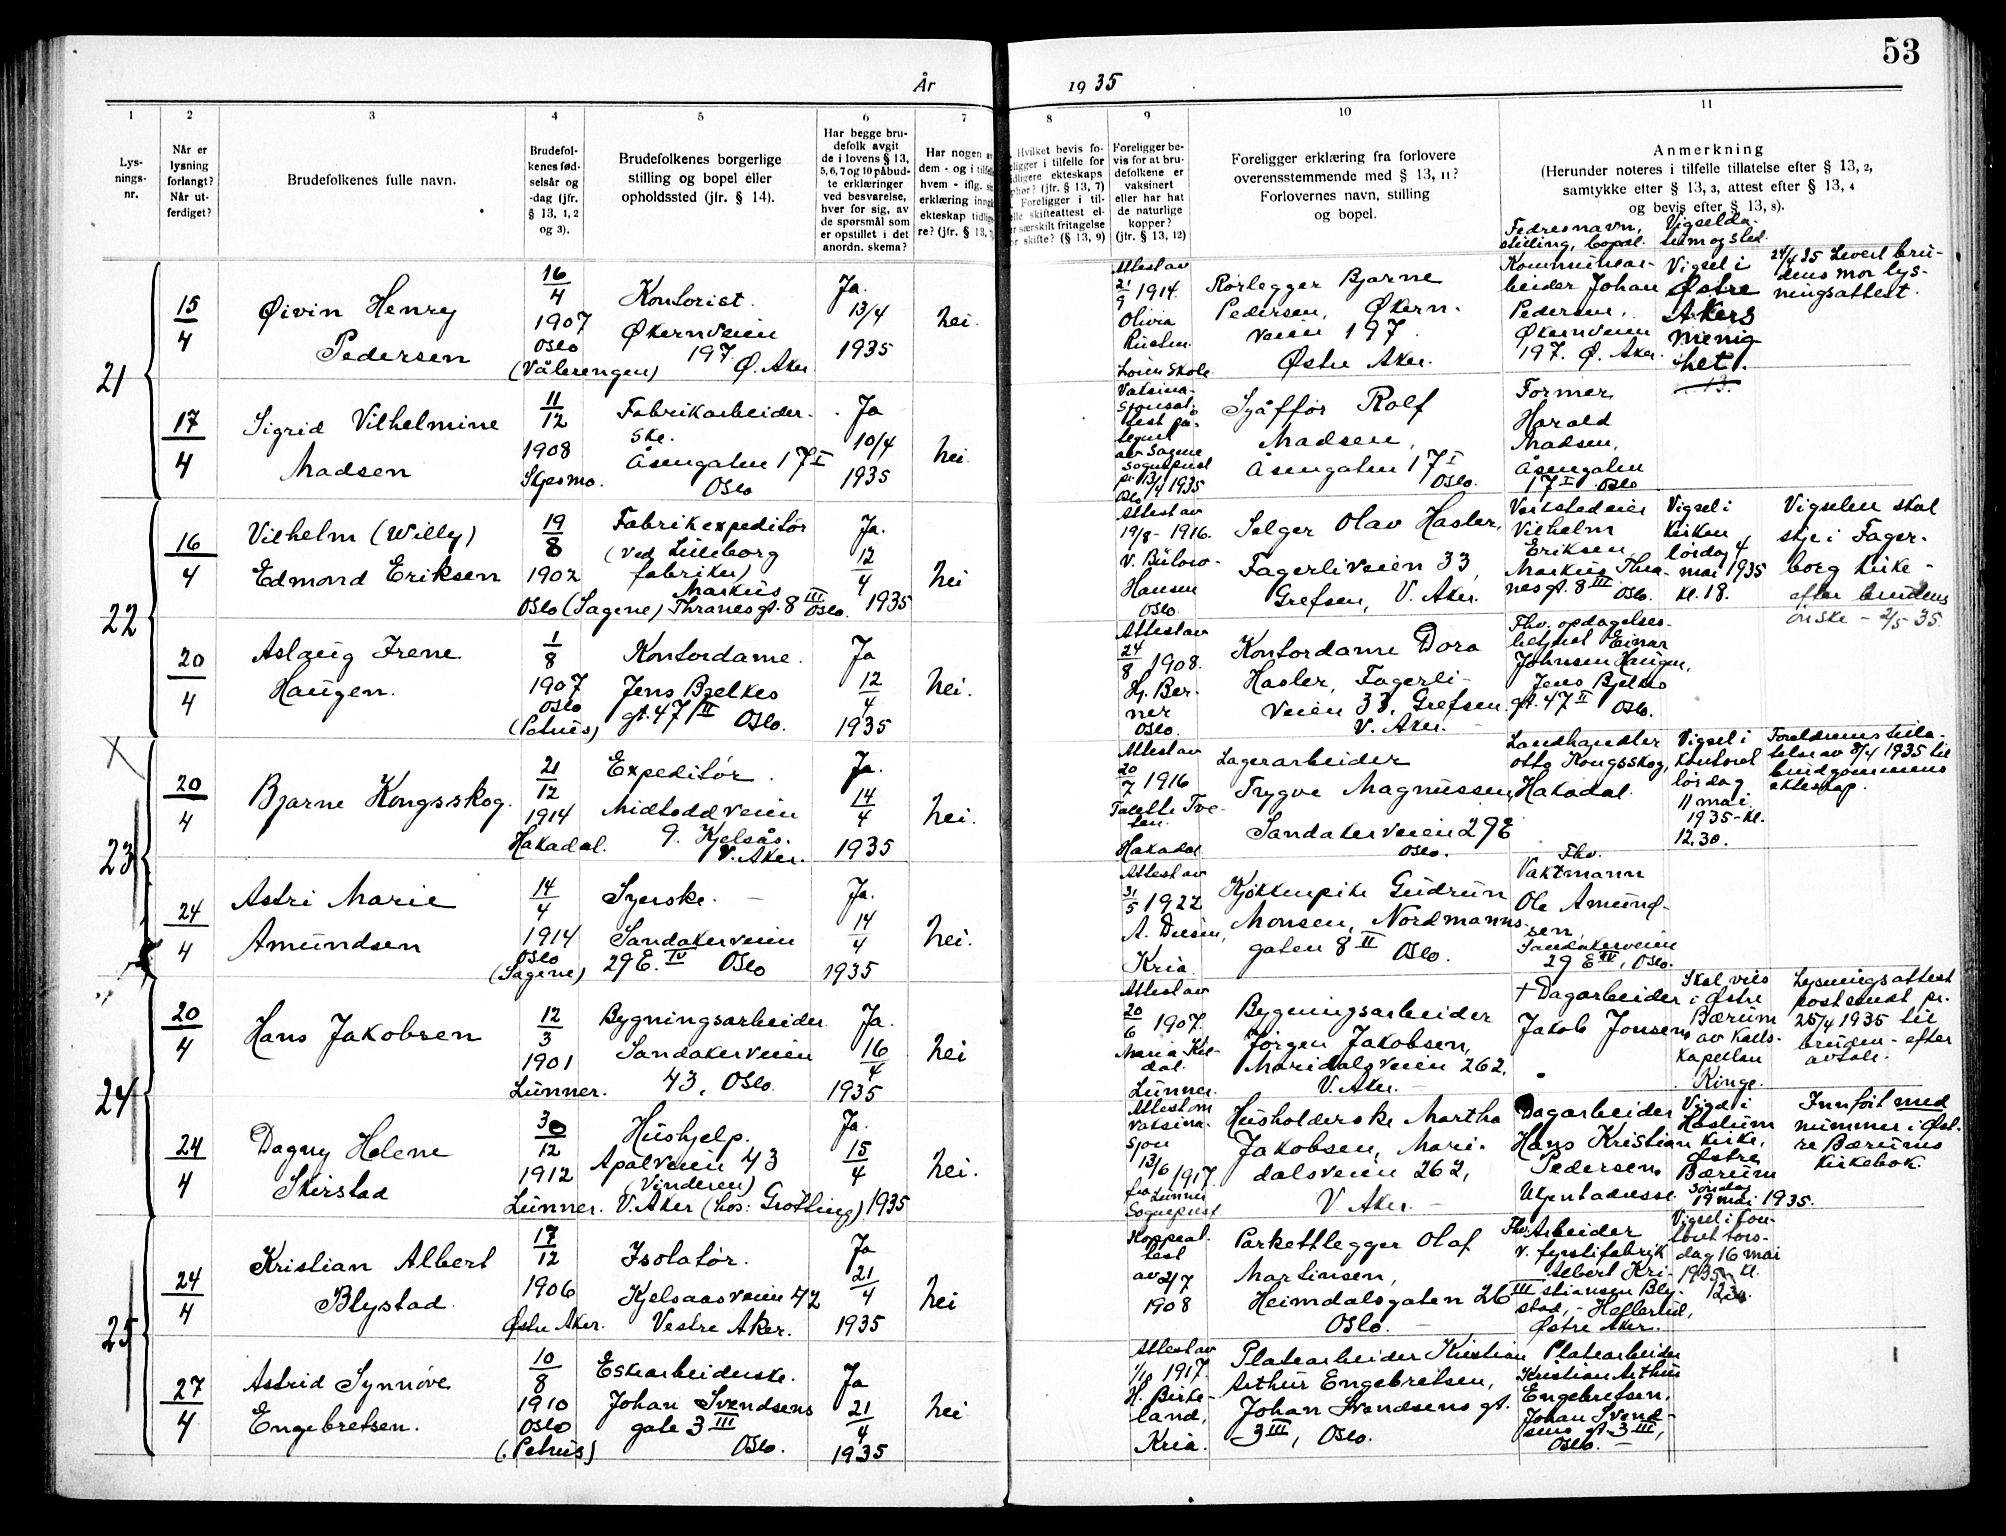 53
År 1935
1 2 3 4 5 6 7 8 9 10 11
Lys-
nings-
nr.
Når er
lysning
forlangt?
Når ut-
ferdiget?
Brudefolkenes fulle navn.
Brudefol-
kenes fød-
selsår og
-dag (jfr.
§ 13, 1, 2
og 3).
Brudefolkenes borgerlige
stilling og bopel eller
opholdssted (jfr. § 14).
Har begge bru-
defolk avgit
de i lovens § 13,
5, 6, 7 og 10 påbud-
te erklæringer
ved besvarelse,
hver for sig, av
de spørsmål som
er opstillet i det
anordn. skema?
Har nogen
dem - og i
hvem - iflg.
erklæring
ekteskap
re? (jfr. § 13,
Hvilket bevis fo-
i tilfelle for
ekteskaps
(jfr. § 13, 7)
Foreligger i til-
skifteattest el-
særskilt fritagelse
skifte? (§ 13, 9)
Foreligger be-
vis for at bru-
defolkene er
vaksinert
eller har hat
de naturlige
kopper?
(jfr. § 13, 12)
Foreligger erklæring fra forlovere
overensstemmende med § 13, 11?
Forlovernes navn, stilling
og bopel.
Anmerkning
(Herunder noteres i tilfelle tillatelse efter § 13, 2,
samtykke efter § 13, 3, attest efter § 13, 4
og bevis efter § 13, 8).
Fedres navn,
stilling, bopel.
Vigselda-
tum og sted.
21
15/4
Øivin Henry
Pedersen
16/4
1907
Oslo
(Vålerengen)
Kontorist.
Økernveien
197. Ø. Aker
Ja.
13/4
1935
nei.
Attest av
21/9 1914.
Olivia
Løren skole
Rørlegger Bjarne
Pedersen, Økern-
veien 197
Østre Aker.
Kommunear-
beider Johan
Pedersen,
Økernveien
197. Ø. Aker.
Vigsel i
Østre
Akers
menig
het.
13.
24/4 35 Levert bru-
dens mor lys-
ningsattest.
17/4
Sigrid Vilhelmine
Madsen
11/12
1908
Skjesmo.
Fabrikarbeider-
ske.
Åsengaten 17 I
Oslo
Ja
10/4
1935
nei.
Vaksina-
sjonsat-
test på-
tegnet
av Sagene
Sogneprest
pr. 13/4 1935
Oslo
Sjåffør Rolf
Madsen,
Åsengaten 17 I
Oslo.
Former
Harald
Madsen,
Åsengaten
17 I Oslo
22
16/4
Vilhelm (Willy)
Edmond Eriksen
19/8
1902
Oslo (Sagene)
Fabrikexpeditør
(ved Lilleborg
fabriker)
Markus
Thranes gt. 8 III Oslo.
Ja.
12/4
1935
nei
Attest av
19/8 - 1916.
v. Bülow-
Hansen
Oslo.
Selger Olav Hasler,
Fagerliveien 33,
Grefsen, V. Aker.
Verkstedeier
Vilhelm
Eriksen
Markus Thra-
nes gt. 8 III Oslo.
Vigsel i
kirken
lørdag 4
mai 1935
kl. 18.
Vigselen skal
skje i Fager-
borg kirke -
efter brudens
ønske - 2/5 - 35.
20/4
Aslaug Irene
Haugen.
1/8
1907
Oslo
(Petrus)
Kontordame.
Jens Bjelkes
gt. 47 II Oslo.
Ja
12/4
1935
nei.
Attest av
24/8 1908.
Hj. Ber-
ner
Oslo.
Kontordame Dora
Hasler, Fagerli-
veien 33, Grefsen.
V. Aker.
Fhv. opdagelses-
betjent Einar
Johnsen Haugen,
Jens Bjelkes
gt. 47 II Oslo.
23
20/4
Bjarne Kongsskog.
21/12
1914
Hakadal.
Expeditør.
Midtoddveien
9. Kjelsås.
V. Aker.
Ja.
14/4
1935
nei.
Attest av
20/7 1916
Tve-
ten.
Hakadal
Lagerarbeider
Trygve Magnussen,
Sandakerveien 29 E
Oslo.
Landhandler
Otto Kongsskog,
Hakadal.
Vigsel i
kontoret
lørdag
11 mai
1935 - kl.
12.30.
Foreldrenes tilla-
telse av 8/4 1935 til
brudgommens
ekteskap.
24/4
Astri Marie
Amundsen
14/4
1914
Oslo
(Sagene)
Syerske.
Sandakerveien
29 E. IV Oslo
Ja.
14/4
1935
nei.
Attest av
31/5 1922
A. Diesen,
Kria.
Kjøkkenpike Gudrun
Monsen, Nordmanns-
gaten 8 II Oslo.
Fhv.
Vaktmann
Ole Amund-
sen,
Sandakerveien
29 E IV, Oslo.
24
20/4
Hans Jakobsen
12/3
1901
Lunner.
Bygningsarbeider.
Sandakerveien
43, Oslo.
Ja.
16/4
1935
nei
Attest av
20/6 1907.
Maria Kal-
dal.
Lunner.
Bygningsarbeider
Jørgen Jakobsen,
Maridalsveien 262,
V. Aker.
† Dagarbeider
Jakob Jonsen.
Skal vies
i Østre
Bærum
av kalls-
kapellan
Ringe.
Lysningsattest
postsendt pr.
25/4 1935 til
bruden - efter
avtale.
24/4
Dagny Helene
Skirstad
30/12
1912
Lunner.
Hushjelp.
Apalveien 43
(Vinderen)
V. Aker (hos: Grøtting)
Ja.
15/4
1935
nei.
Attest om
vaksina-
sjon
13/6 1917.
fra Lunner
Sogneprest
Husholderske Martha
Jakobsen, Mari-
dalsveien 262,
V. Aker.
Dagarbeider
Hans Kristian
Pedersen,
Ukjent adresse.
Vigd i
Haslum
kirke,
Østre
Bærum
søndag
19 mai 1935.
Innført med
nummer i Øst-
re Bærums
kirkebok.
25
24/4
Kristian Albert
Blystad
17/12
1906
Østre Aker.
Isolatør.
Kjelsaasveien 42
Vestre Aker.
Ja
21/4
1935
nei
Koppeat-
test
av 2/7
1908
Parkettlegger Olaf
Martinsen,
Heimdalsgaten 26 III
Oslo.
Fhv. Arbeider
v. fyrstifabrik
Albert Kri-
stiansen Bly-
stad, - Hellerud,
Østre Aker.
Vigsel i kon-
toret tors-
dag 16 mai
1935 kl.
12 30.
27/4
Astrid Synnøve
Engebretsen.
10/8
1910
Oslo
(Petrus)
Eskearbeiderske.
Johan Svendsens
gate 3 III
Oslo.
Ja
21/4
1935
nei
Attest av
1917.
H. Birke-
land,
Kria.
Platearbeider Kristian
Arthur Engebretsen,
Johan Svendsens gt.
3 III, Oslo.
Platearbeider
Kristian Arthur
Engebretsen,
Johan Svend-
sens gt. 3 III,
Oslo.